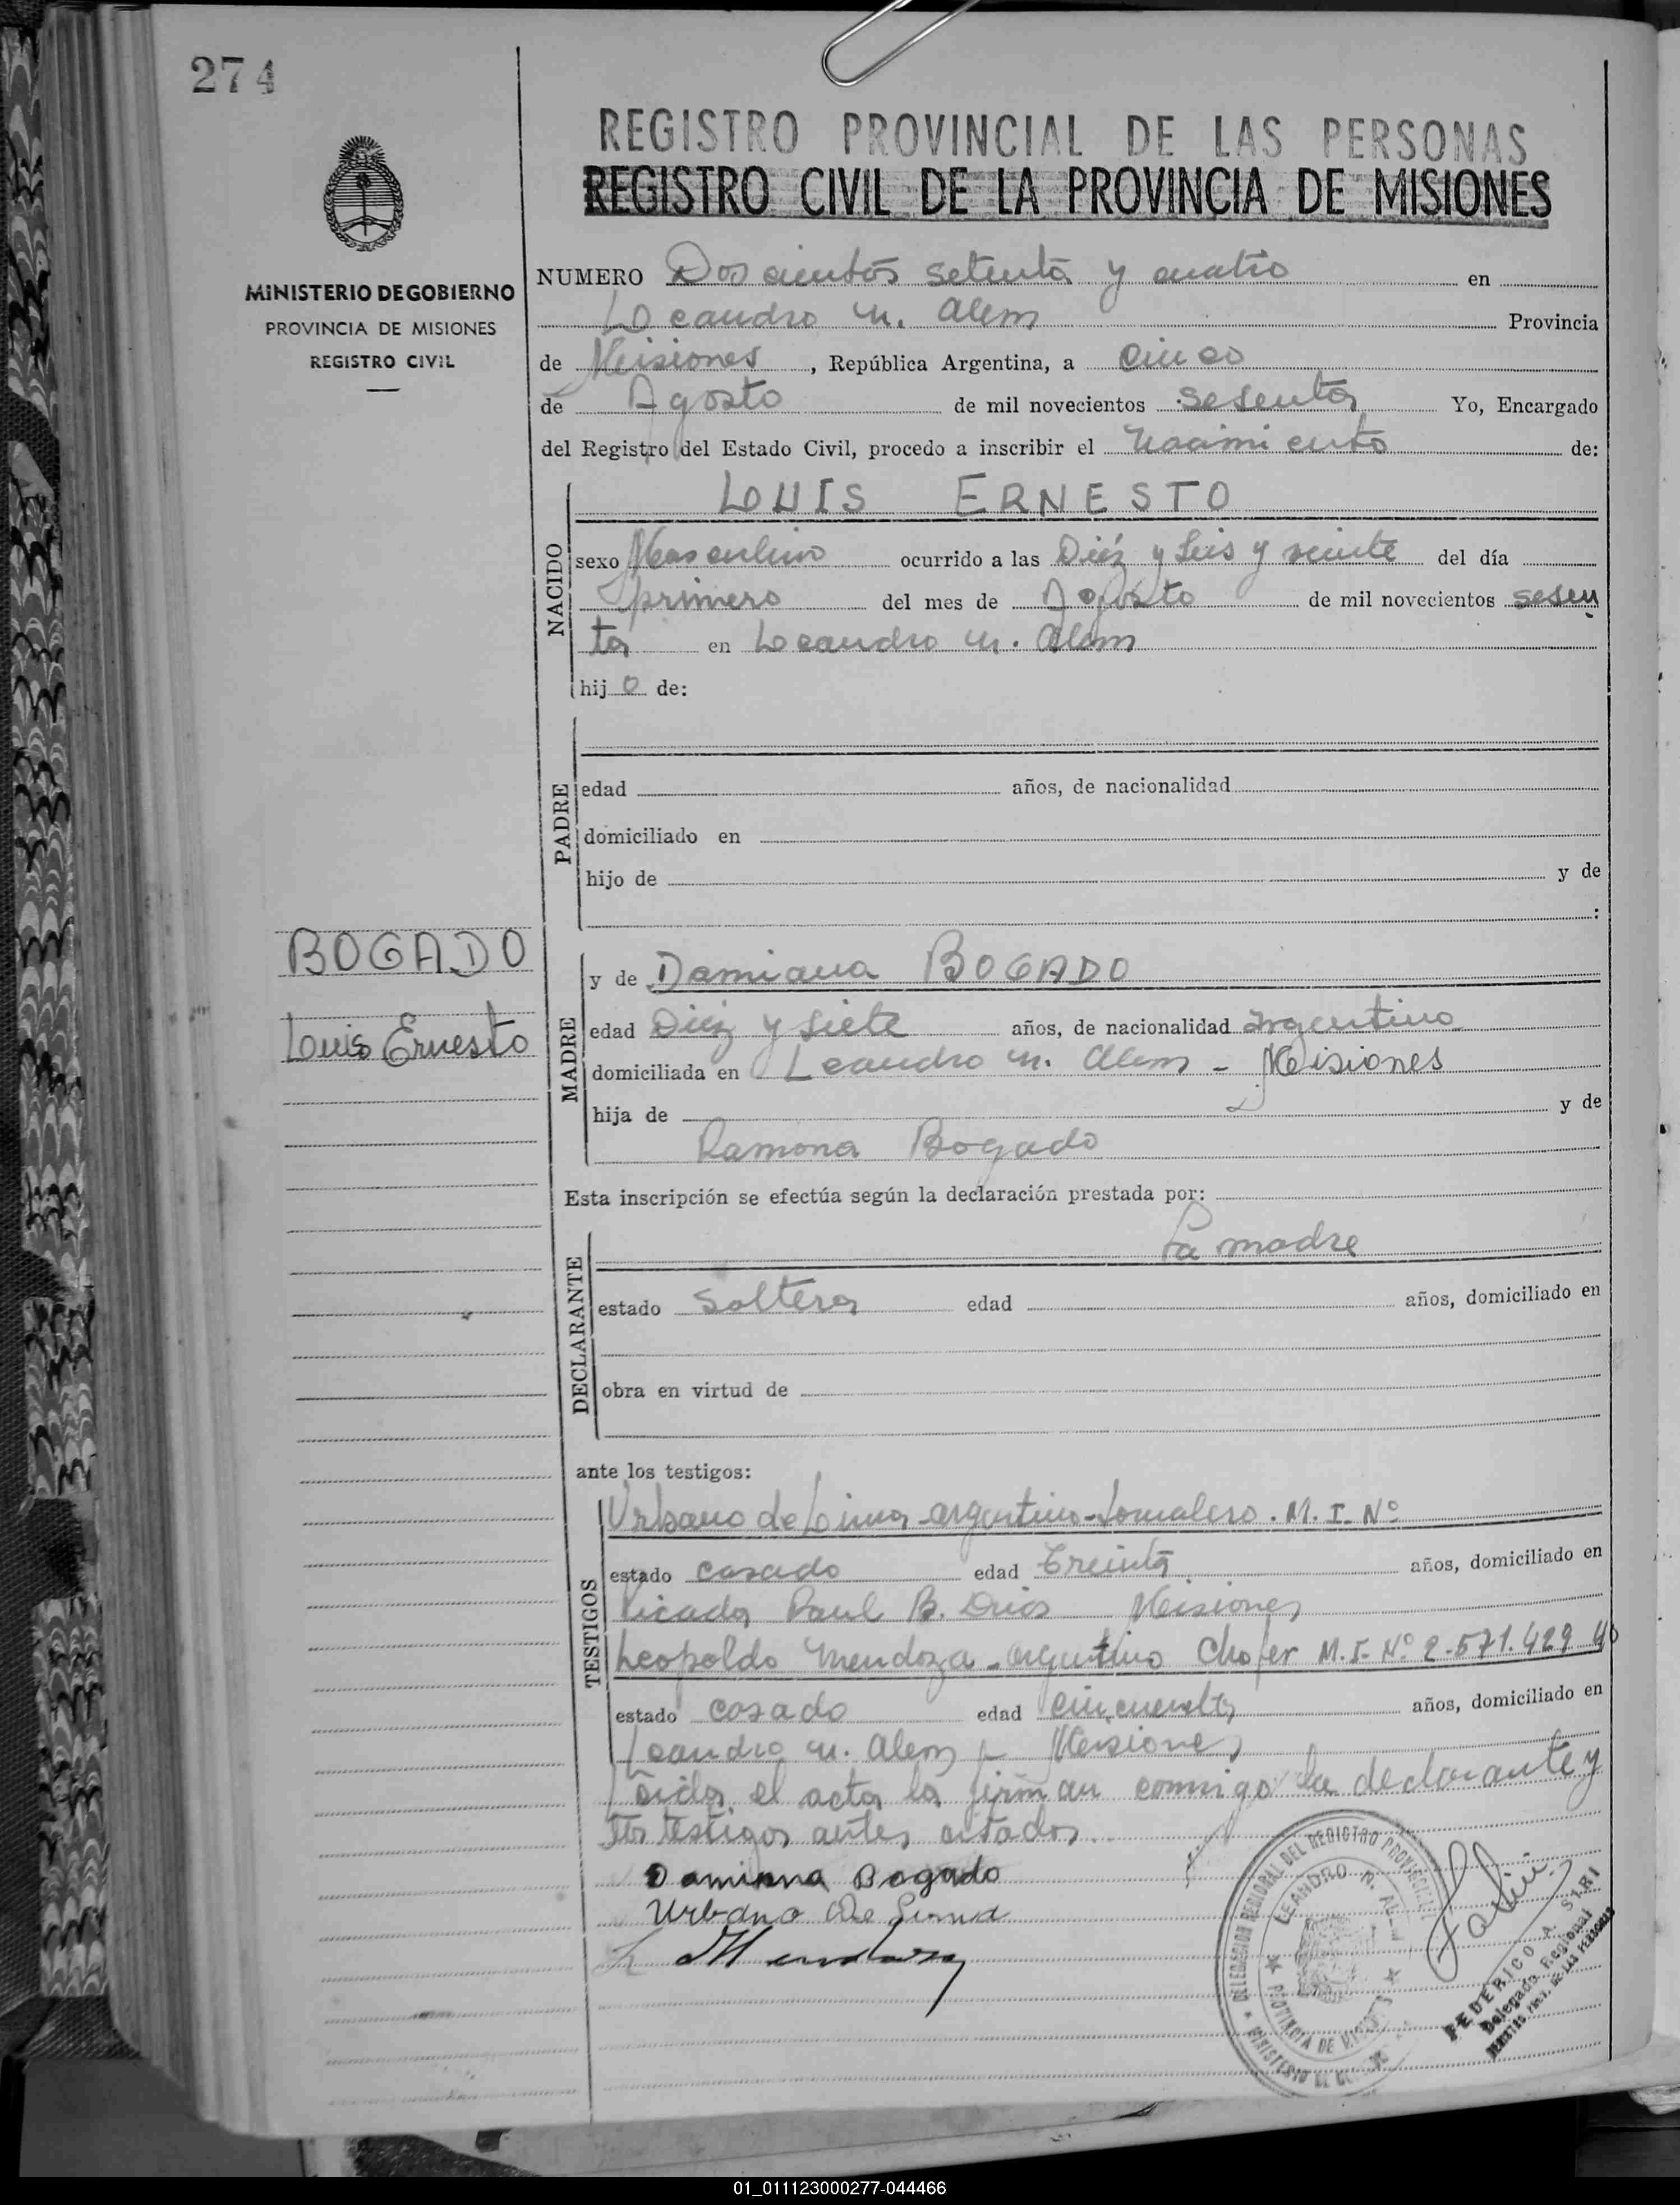 274
REGISTRO PROVINCIAL DE LAS PERSONAS
REGISTRO CIVIL DE LA PROVINCIA DE MISIONES
MINISTERIO DE GOBIERNO
PROVINCIA DE MISIONES
REGISTRO CIVIL
NUMERO Dos cientos setenta y cuatro en
Leandro N. Alem Provincia
de Misiones, República Argentina, a cinco
de Agosto de mil novecientos sesenta Yo, Encargado
del Registro del Estado Civil, procedo a inscribir el Nacimiento de:
NACIDO
LUIS ERNESTO
sexo Masculino ocurrido a las Diéz y Seis y veinte del día
primero del mes de Agosto de mil novecientos sesen
ta en Leandro N. Alem
hijo de:
PADRE
edad años, de nacionalidad
domiciliado en
hijo de y de
:
BOGADO
Luis Ernesto
MADRE
y de Damiana BOGADO
edad Diéz y siete años, de nacionalidad argentina
domiciliada en Leandro N. Alem - Misiones
hija de y de
Ramona Bogado
Esta inscripción se efectúa según la declaración prestada por:
DECLARANTE
La madre
estado Soltera edad años, domiciliado en
obra en virtud de
ante los testigos:
TESTIGOS
Urbano de Lima - argentino - Jornalero. M. I. Nº
estado casado edad treinta años, domiciliado en
Picada Misiones
Leopoldo Mendoza - argentino Chofer M. I. Nº 2.571.429
estado casado edad cincuenta años, domiciliado en
Leandro N. Alem - Misiones
Leida el acta la firman conmigo la declarante y
los testigos antes citados.
Damiana Bogado
Urbano De Lima
L Mendoza
DELEGACION REGIONAL DEL REGISTRO PROVINCIAL
LEANDRO N. ALEM
PROVINCIA DE MISIONES
FEDERICO A. SIRI
Delegado Regional
REGISTRO PROV. DE LAS PERSONAS
01_011123000277-044466